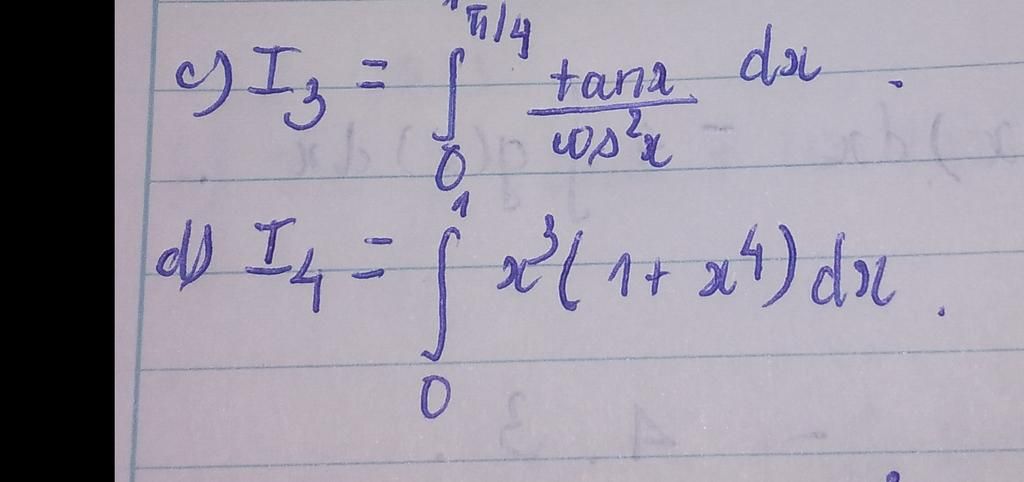 c) I₃ = ∫₀^π/4 tanx/cos²x dx .
d) I₄ = ∫₀¹ x³(1+ x⁴)dx .